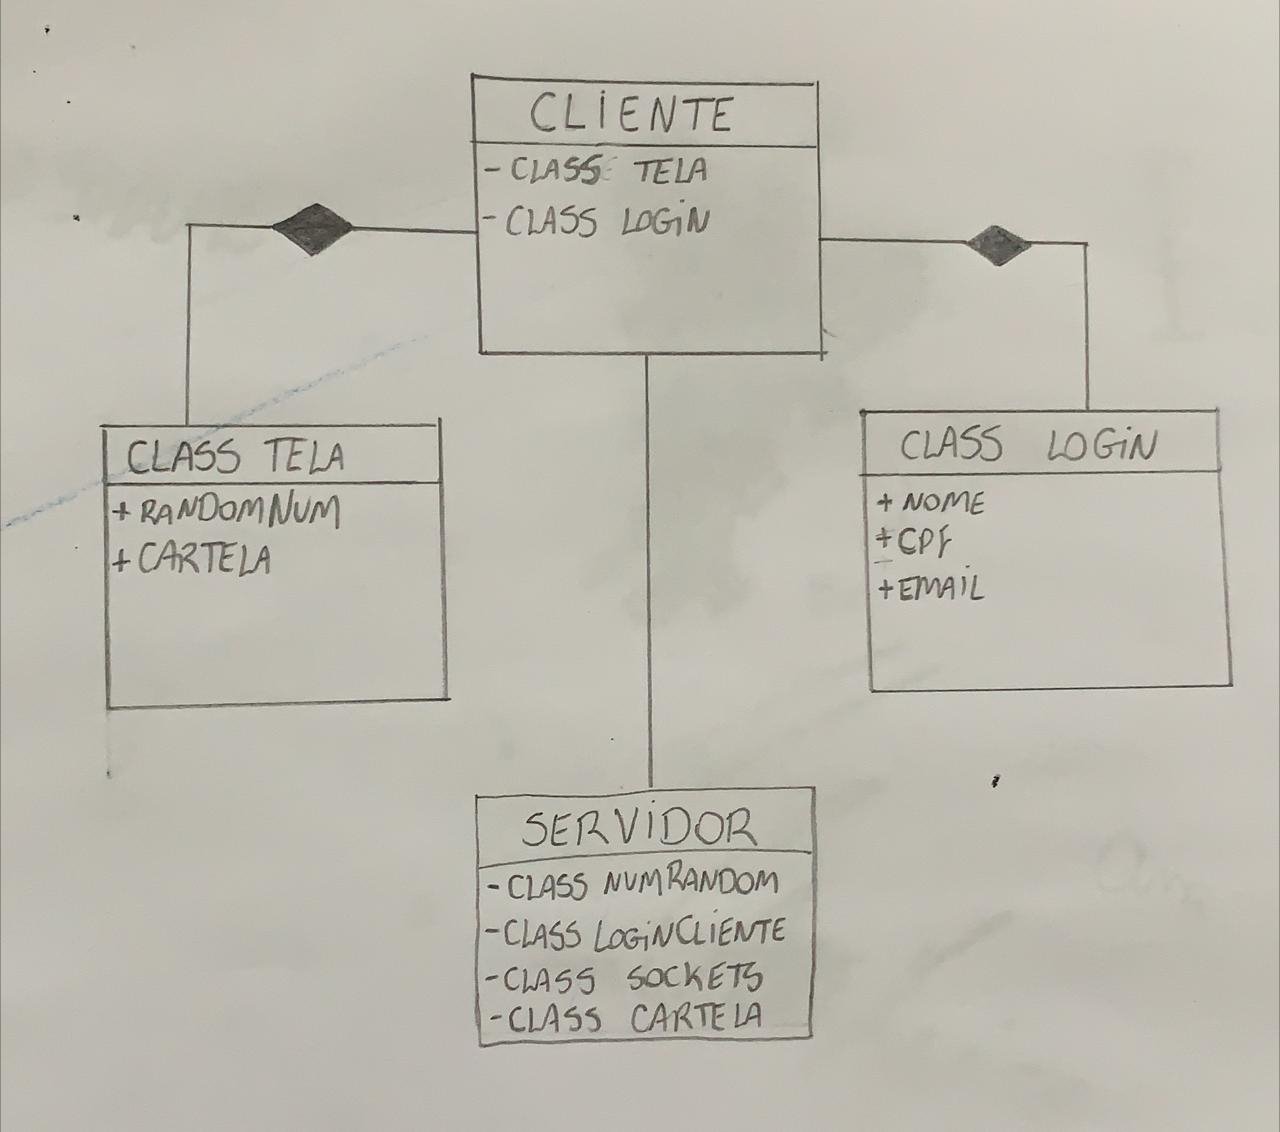 CLIENTE
- CLASS TELA
- CLASS LOGIN
CLASS TELA
+ RANDOMNUM
+ CARTELA
CLASS LOGIN
+ NOME
+ CPF
+ EMAIL
SERVIDOR
- CLASS NUMRANDOM
- CLASS LOGINCLIENTE
- CLASS SOCKETS
- CLASS CARTELA